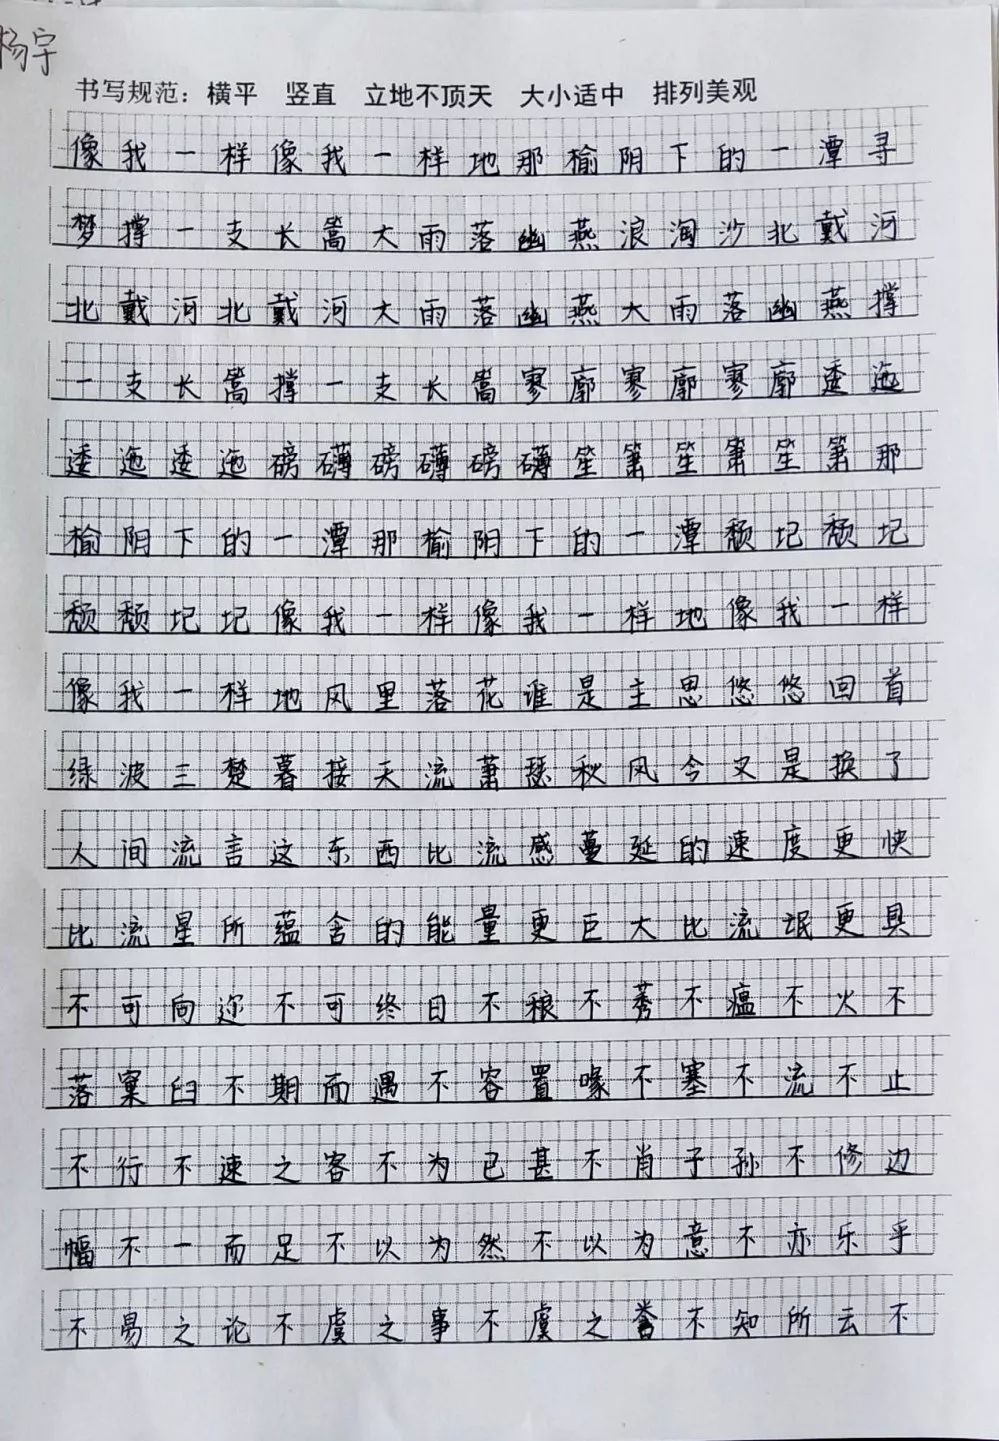 杨宇
书写规范：横平 竖直 立地不顶天 大小适中 排列美观
像我一样像我一样地那榆阴下的一潭寻
梦撑一支长篙大雨落幽燕浪淘沙北戴河
北戴河北戴河大雨落幽燕大雨落幽燕撑
一支长篙撑一支长篙寥廓寥廓寥廓逶迤
逶迤逶迤磅礴磅礴磅礴笙箫笙箫笙箫那
榆阴下的一潭那榆阴下的一潭颓圮颓圮
颓颓圮圮像我一样像我一样地像我一样
像我一样地风里落花谁是主思悠悠回首
绿波三楚暮接天流萧瑟秋风今又是换了
人间流言这东西比流感蔓延的速度更快
比流星所蕴含的能量更巨大比流氓更具
不可向迩不可终日不稂不莠不瘟不火不
落窠臼不期而遇不容置喙不塞不流不止
不行不速之客不为已甚不肖子孙不修边
幅不一而足不以为然不以为意不亦乐乎
不易之论不虞之事不虞之誉不知所云不